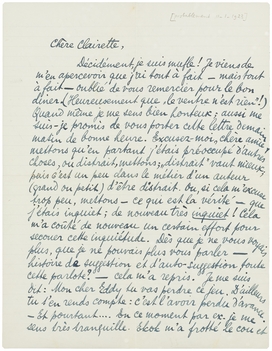 Chère Clairette,
Décidément je suis mufle! Je viens de
m'en apercevoir que j'ai tout à fait — mais tout
à fait — oublié de vous remercier pour le bon
dîner. (Heureusement que "le ventre n'est rien"!)
Quand même je me sens bien honteux; aussi me
suis-je promis de vous porter cette lettre demain
matin de bonne heure. Excusez-moi, chère amie:
mettons qu'en partant j'étais préoccupé d'autres
choses, ou distrait, mettons; "distrait" vaut mieux,
puis c'est un peu dans le métier d'un auteur
(grand ou petit) d'être distrait. Ou, si cela m'excuse
trop, mettons — ce qui est la vérité — que
j'étais inquiet; de nouveau très inquiet! Cela
m'a coûté de nouveau un certain effort pour
secouer cette inquiétude. Dès que je ne vous
plus, que je ne pouvais plus vous parler —
histoire de suggestion et d'auto-suggestion toute
cette parlote? — cela m'a repris. Je me suis
dit: Mon cher Eddy tu vas perdre ce jeu. D'ailleurs
tu t'en rends compte: c'est l'avoir perdu d'avance
— Et pourtant.... En ce moment par ex. je me
sens très tranquille. m'a frotté le cou et